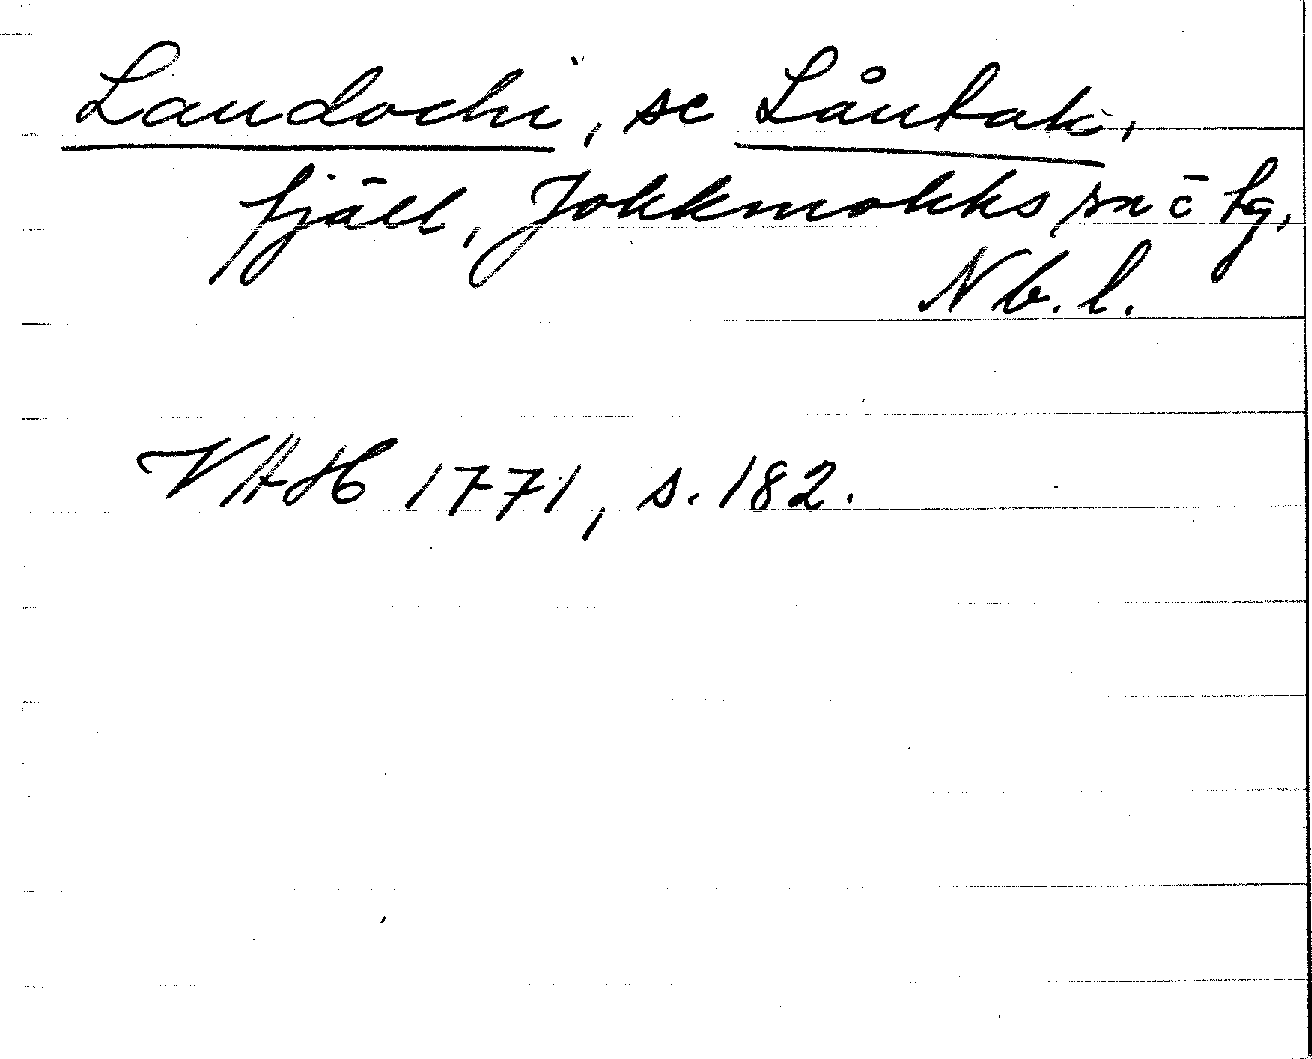 Laudochi, se Låutak,
fjäll, Jokkmokks sn o lg,
Nb. l.
VAH 1771, s. 182.